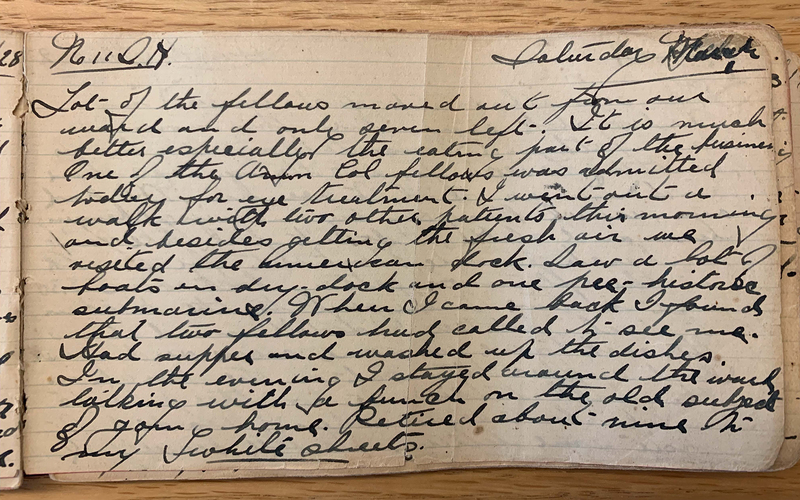 Saturday March 1
Lot of the fellows moved out from our
ward and only seven left. It is much
better especially the eating part of the business
One of the Amm Col fellows was admitted
today for eye treatment. I went out a
walk with two other patients this morning
and besides getting the fresh air we
visited the american dock. Saw a lot of
boats in dry-dock and one pre-historic
submarine. When I came back I found
that two fellows had called to see me.
Had supper and washed up the dishes
In the evening I stayed around the ward
talking with a bunch on the old subject
of going home. Retired about nine to
my white sheets.